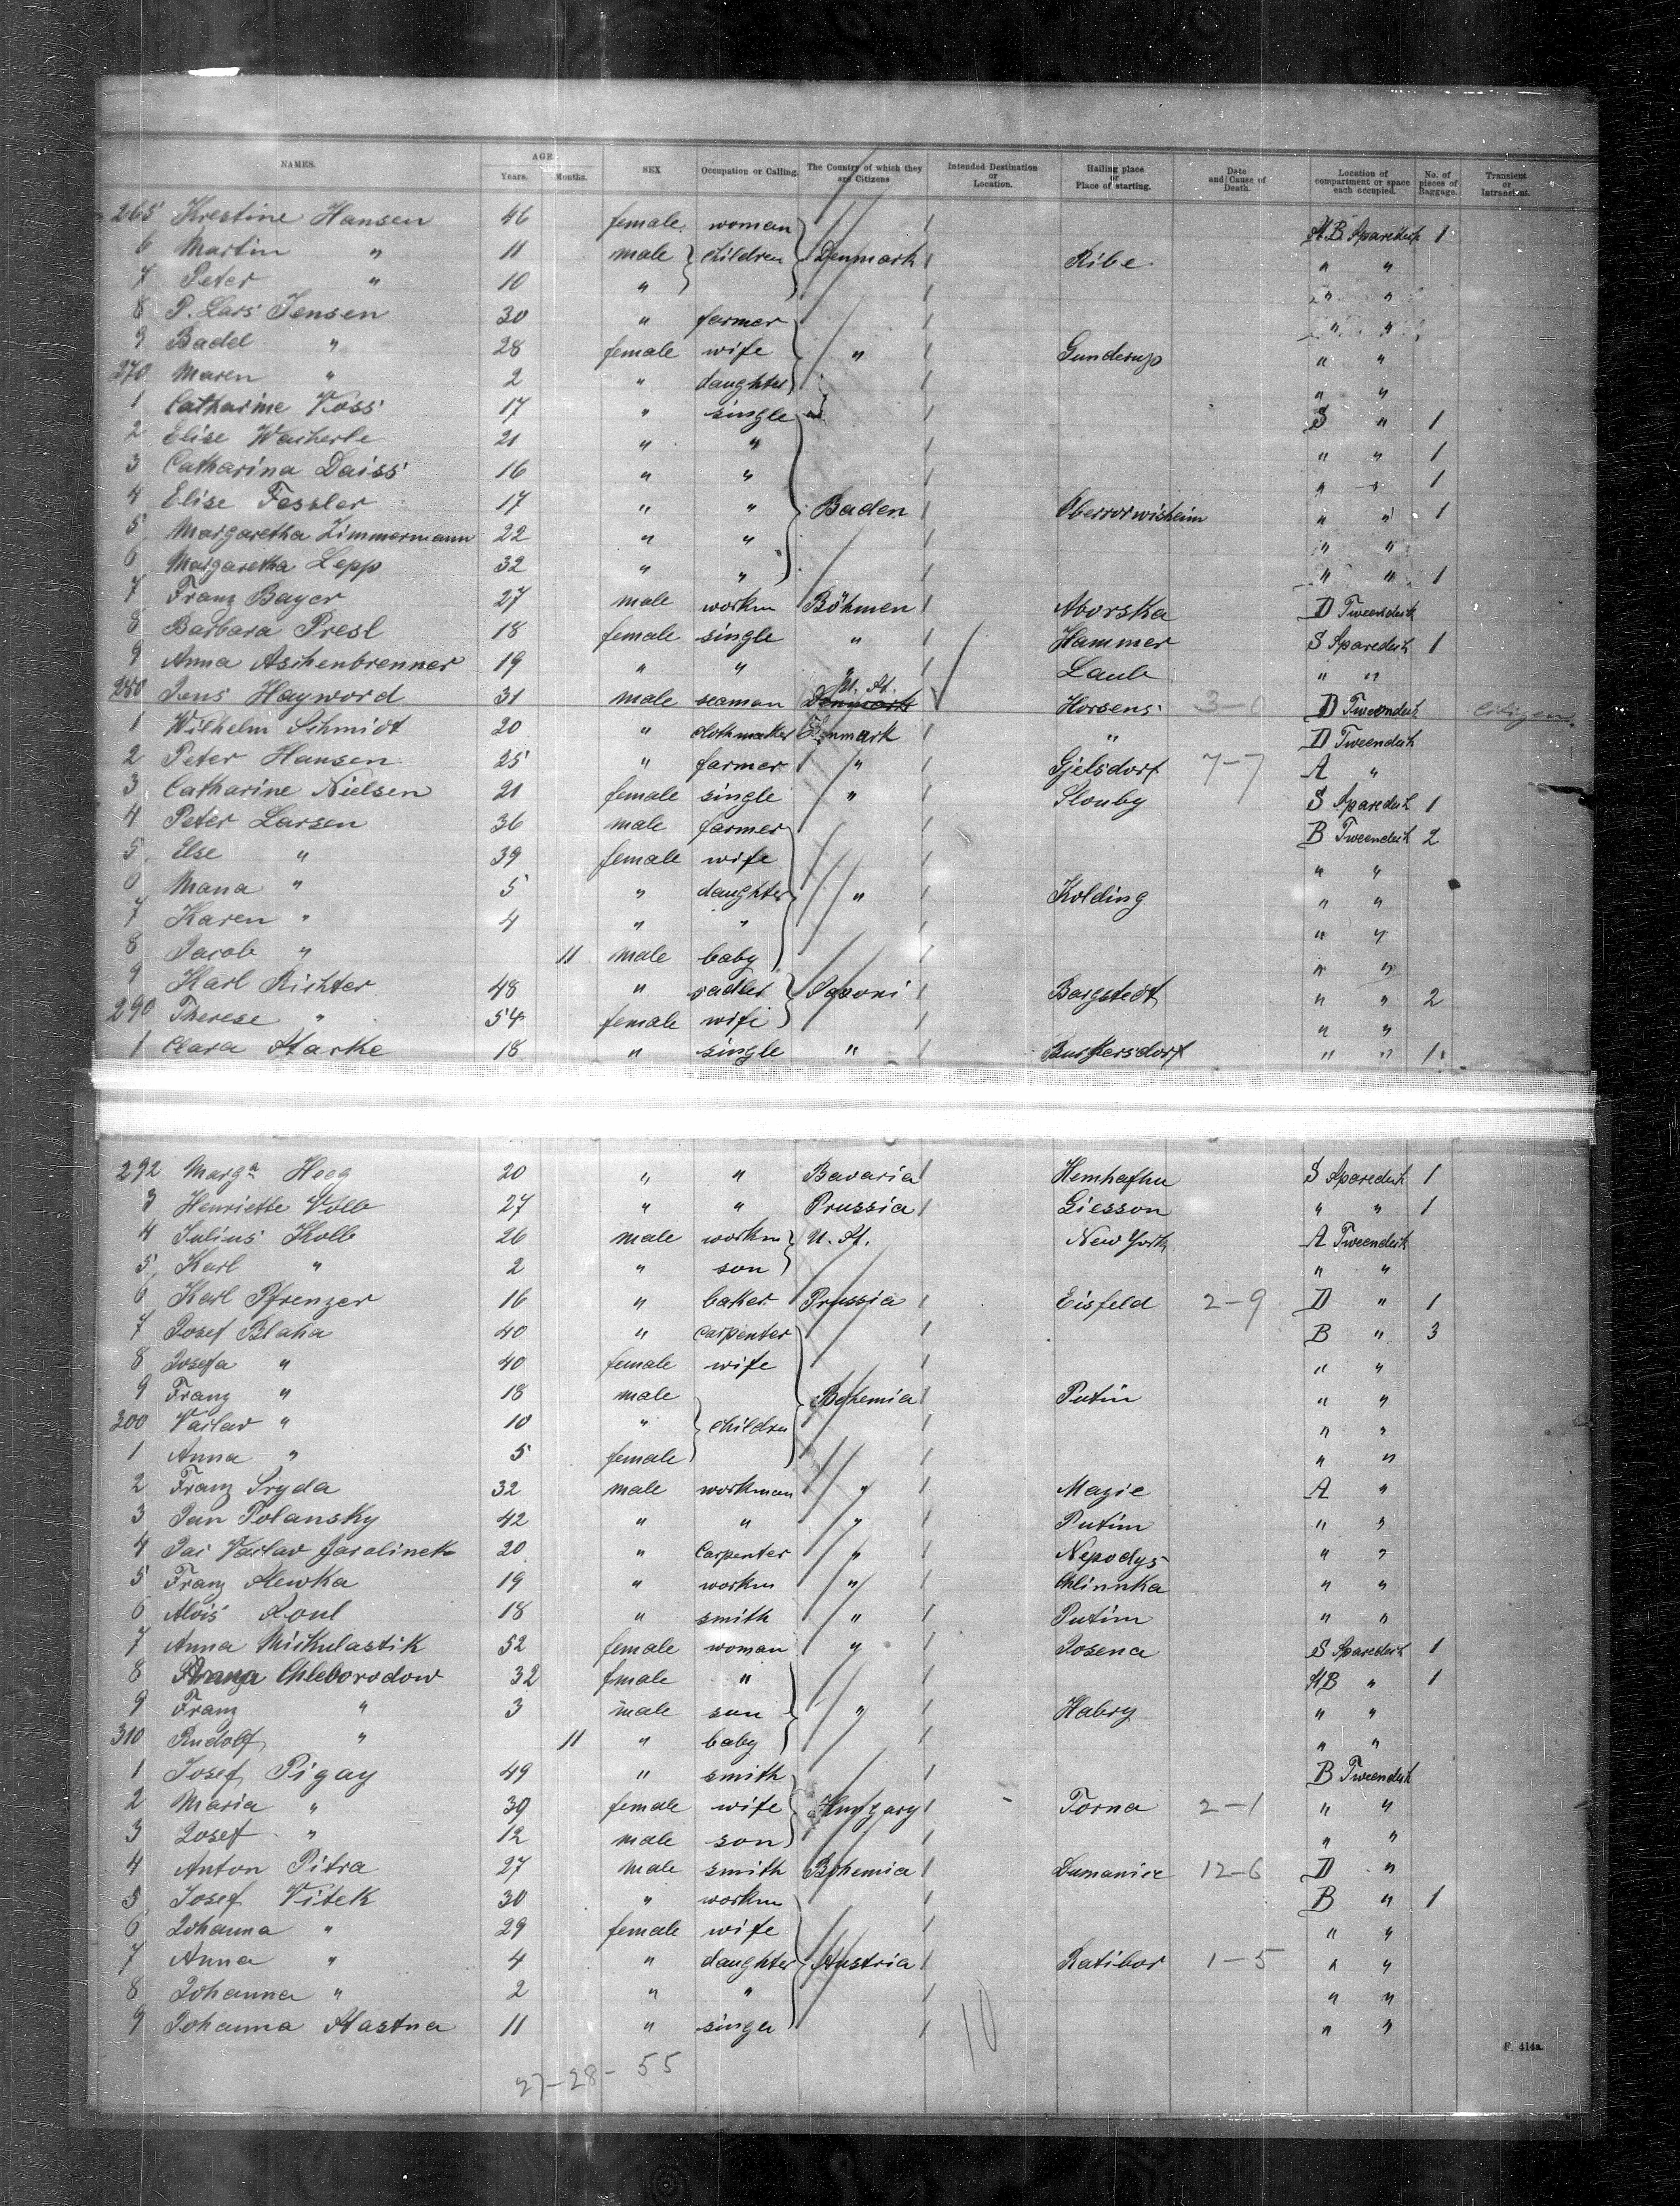 NAMES. AGE Years. Months. SEX Occupation or Calling. The Country of which they are Citizens Intended Destination or Location. Hailing place or Place of starting. Date and Cause of Death. Location of compartment or space each occupied. No. of pieces of Baggage. Transient or Intransient.
265 Krestine Hansen 46 female woman H B Sparedeck 1
6 Martin " 11 male children Denmark Ribe " "
7 Peter " 10 " " "
8 P. Lars Jensen 30 " farmer " "
9 Badd " 28 female wife " Gunderup " "
270 Maren " 2 " daughter " "
1 Catharine Voss 17 " single S " 1
2 Elise Wacherle 21 " " " " 1
3 Catharina Daiss 16 " " " " 1
4 Elise Fessler 17 " " Baden Oberrorwisheim " " 1
5 Margaretha Zimmermann 22 " " " "
6 Margaretha Lepp 32 " " " " 1
7 Franz Bayer 27 male workm Böhmen Aborska D Tweendeck
8 Barbara Presl 18 female single " Hammer S Sparedeck 1
9 Anna Aschenbrenner 19 " " Laub " "
280 Jens Hayword 31 male seaman Denmark U. St. Horsens 3- D Tweendeck Citizen
1 Wilhelm Schmidt 20 " clothmaker Denmark " D Tweendeck
2 Peter Hansen 25 " farmer " Gjelsdorf 7-7 A "
3 Catharine Nielsen 21 female single " Slouby S Sparedeck 1
4 Peter Larsen 36 male farmer B Tweendeck 2
5 Else " 39 female wife " "
6 Mana " 5 " daughter " Kolding " "
7 Karen " 4 " " " "
8 Jacob " 11 male baby " "
9 Karl Richter 48 " sadler Saxoni Borgstedt " " 2
290 Therese " 54 female wife " "
1 Clara Starke 18 " single " Burkersdorf " " 1
292 Marga Heeg 20 " " Bavaria Hemhafen S Sparedeck 1
3 Henriette Volb 27 " " Prussia Giesson " " 1
4 Julius Kolb 26 male workm U. St. New York A Tweendeck
5 Karl " 2 " son " "
6 Karl Pfrenzer 16 " baker Prussia Eisfeld 2-9 D " 1
7 Josef Blaha 40 " carpenter B " 3
8 Josefa " 40 female wife " "
9 Franz " 18 male Bohemia Putim " "
300 Vaclav " 10 " children " "
1 Anna " 5 female " "
2 Franz Sryda 32 male workman " Mazie A "
3 Jan Polansky 42 " " " Putim " "
4 Jac Vaclav Jarolinek 20 " Carpenter " Nepodys " "
5 Franz Slewka 19 " workm " Chlinnka " "
6 Alois Koul 18 " smith " Putim " "
7 Anna Mikulastik 52 female woman " Posena S Sparedeck 1
8 Chleborodow 32 female " H B " 1
9 Franz " 3 male son " Habry " "
310 Rudolf " 11 " baby " "
1 Josef Pigay 49 " smith B Tweendeck
2 Maria " 39 female wife Hungary Torna 2-1 " "
3 Josef " 12 male son " "
4 Anton Pitra 27 male smith Bohemia Lumanice 12-6 D "
5 Josef Vitek 30 " workm B " 1
6 Johanna " 29 female wife " "
7 Anna " 4 " daughter Austria Ratibor 1-5 " "
8 Johanna " 2 " " " "
9 Johanna Stastna 11 " single " "
10
F. 414a.
27-28-55